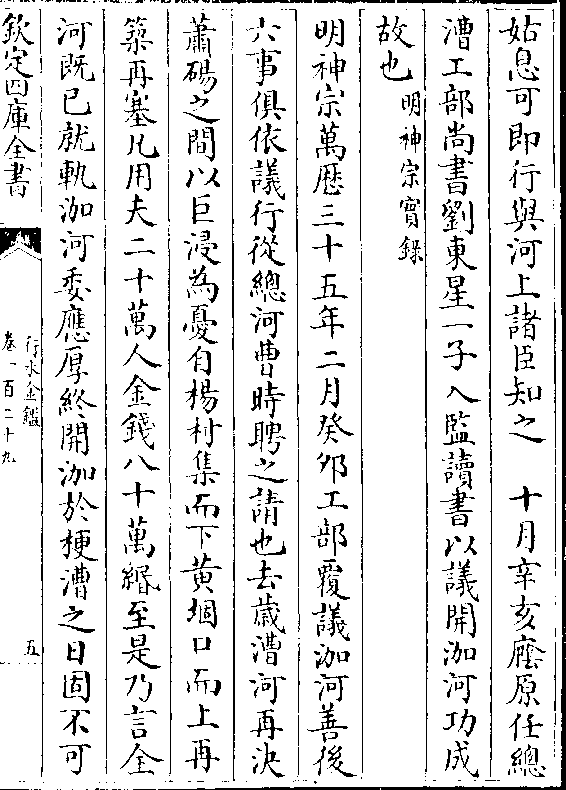 姑息可即行與河上諸臣知之　十月辛亥廕原任總
漕工部尚書劉東星一子入監讀書以議開泇河功成
故也明神宗實錄
明神宗萬厯三十五年二月癸夘工部覆議泇河善後
六事俱依議行從總河曹時聘之請也去歳漕河再決
蕭碭之間以巨浸為憂自楊村集而下黄堌口而上再
築再塞凡用夫二十萬人金錢八十萬緡至是乃言全
河既已就軌泇河委應厚終開泇於梗漕之日固不可
欽定四庫全書
行水金鑑
卷一百二十九
五